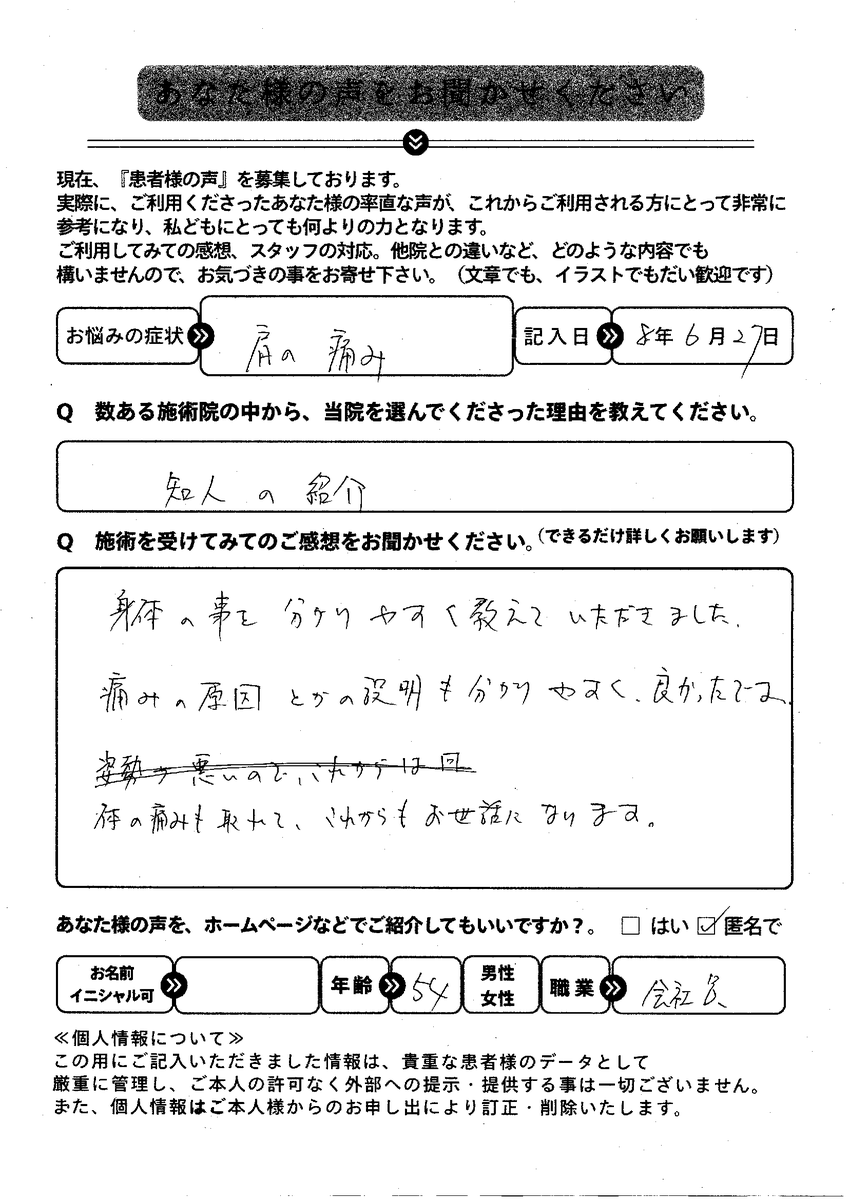 あなた様の声をお聞かせください
現在、『患者様の声』を募集しております。
実際に、ご利用くださったあなた様の率直な声が、これからご利用される方にとって非常に
参考になり、私どもにとっても何よりの力となります。
ご利用してみての感想、スタッフの対応。他院との違いなど、どのような内容でも
構いませんので、お気づきの事をお寄せ下さい。（文章でも、イラストでもだい歓迎です）
お悩みの症状 肩の 痛み 記入日 8年6月27日
Q 数ある施術院の中から、当院を選んでくださった理由を教えてください。
知人の紹介
Q 施術を受けてみてのご感想をお聞かせください。（できるだけ詳しくお願いします）
身体の事を分かりやすく教えていただきました。
痛みの原因とかの説明も分かりやすく、良かったです。
姿勢が悪いので、これからは回
体の痛みも取れて、これからもお世話になります。
あなた様の声を、ホームページなどでご紹介してもいいですか？。 □ はい ☑ 匿名で
お名前
イニシャル可
年齢 54 男性
女性
職業 会社員
≪個人情報について≫
この用にご記入いただきました情報は、貴重な患者様のデータとして
厳重に管理し、ご本人の許可なく外部への提示・提供する事は一切ございません。
また、個人情報はご本人様からのお申し出により訂正・削除いたします。